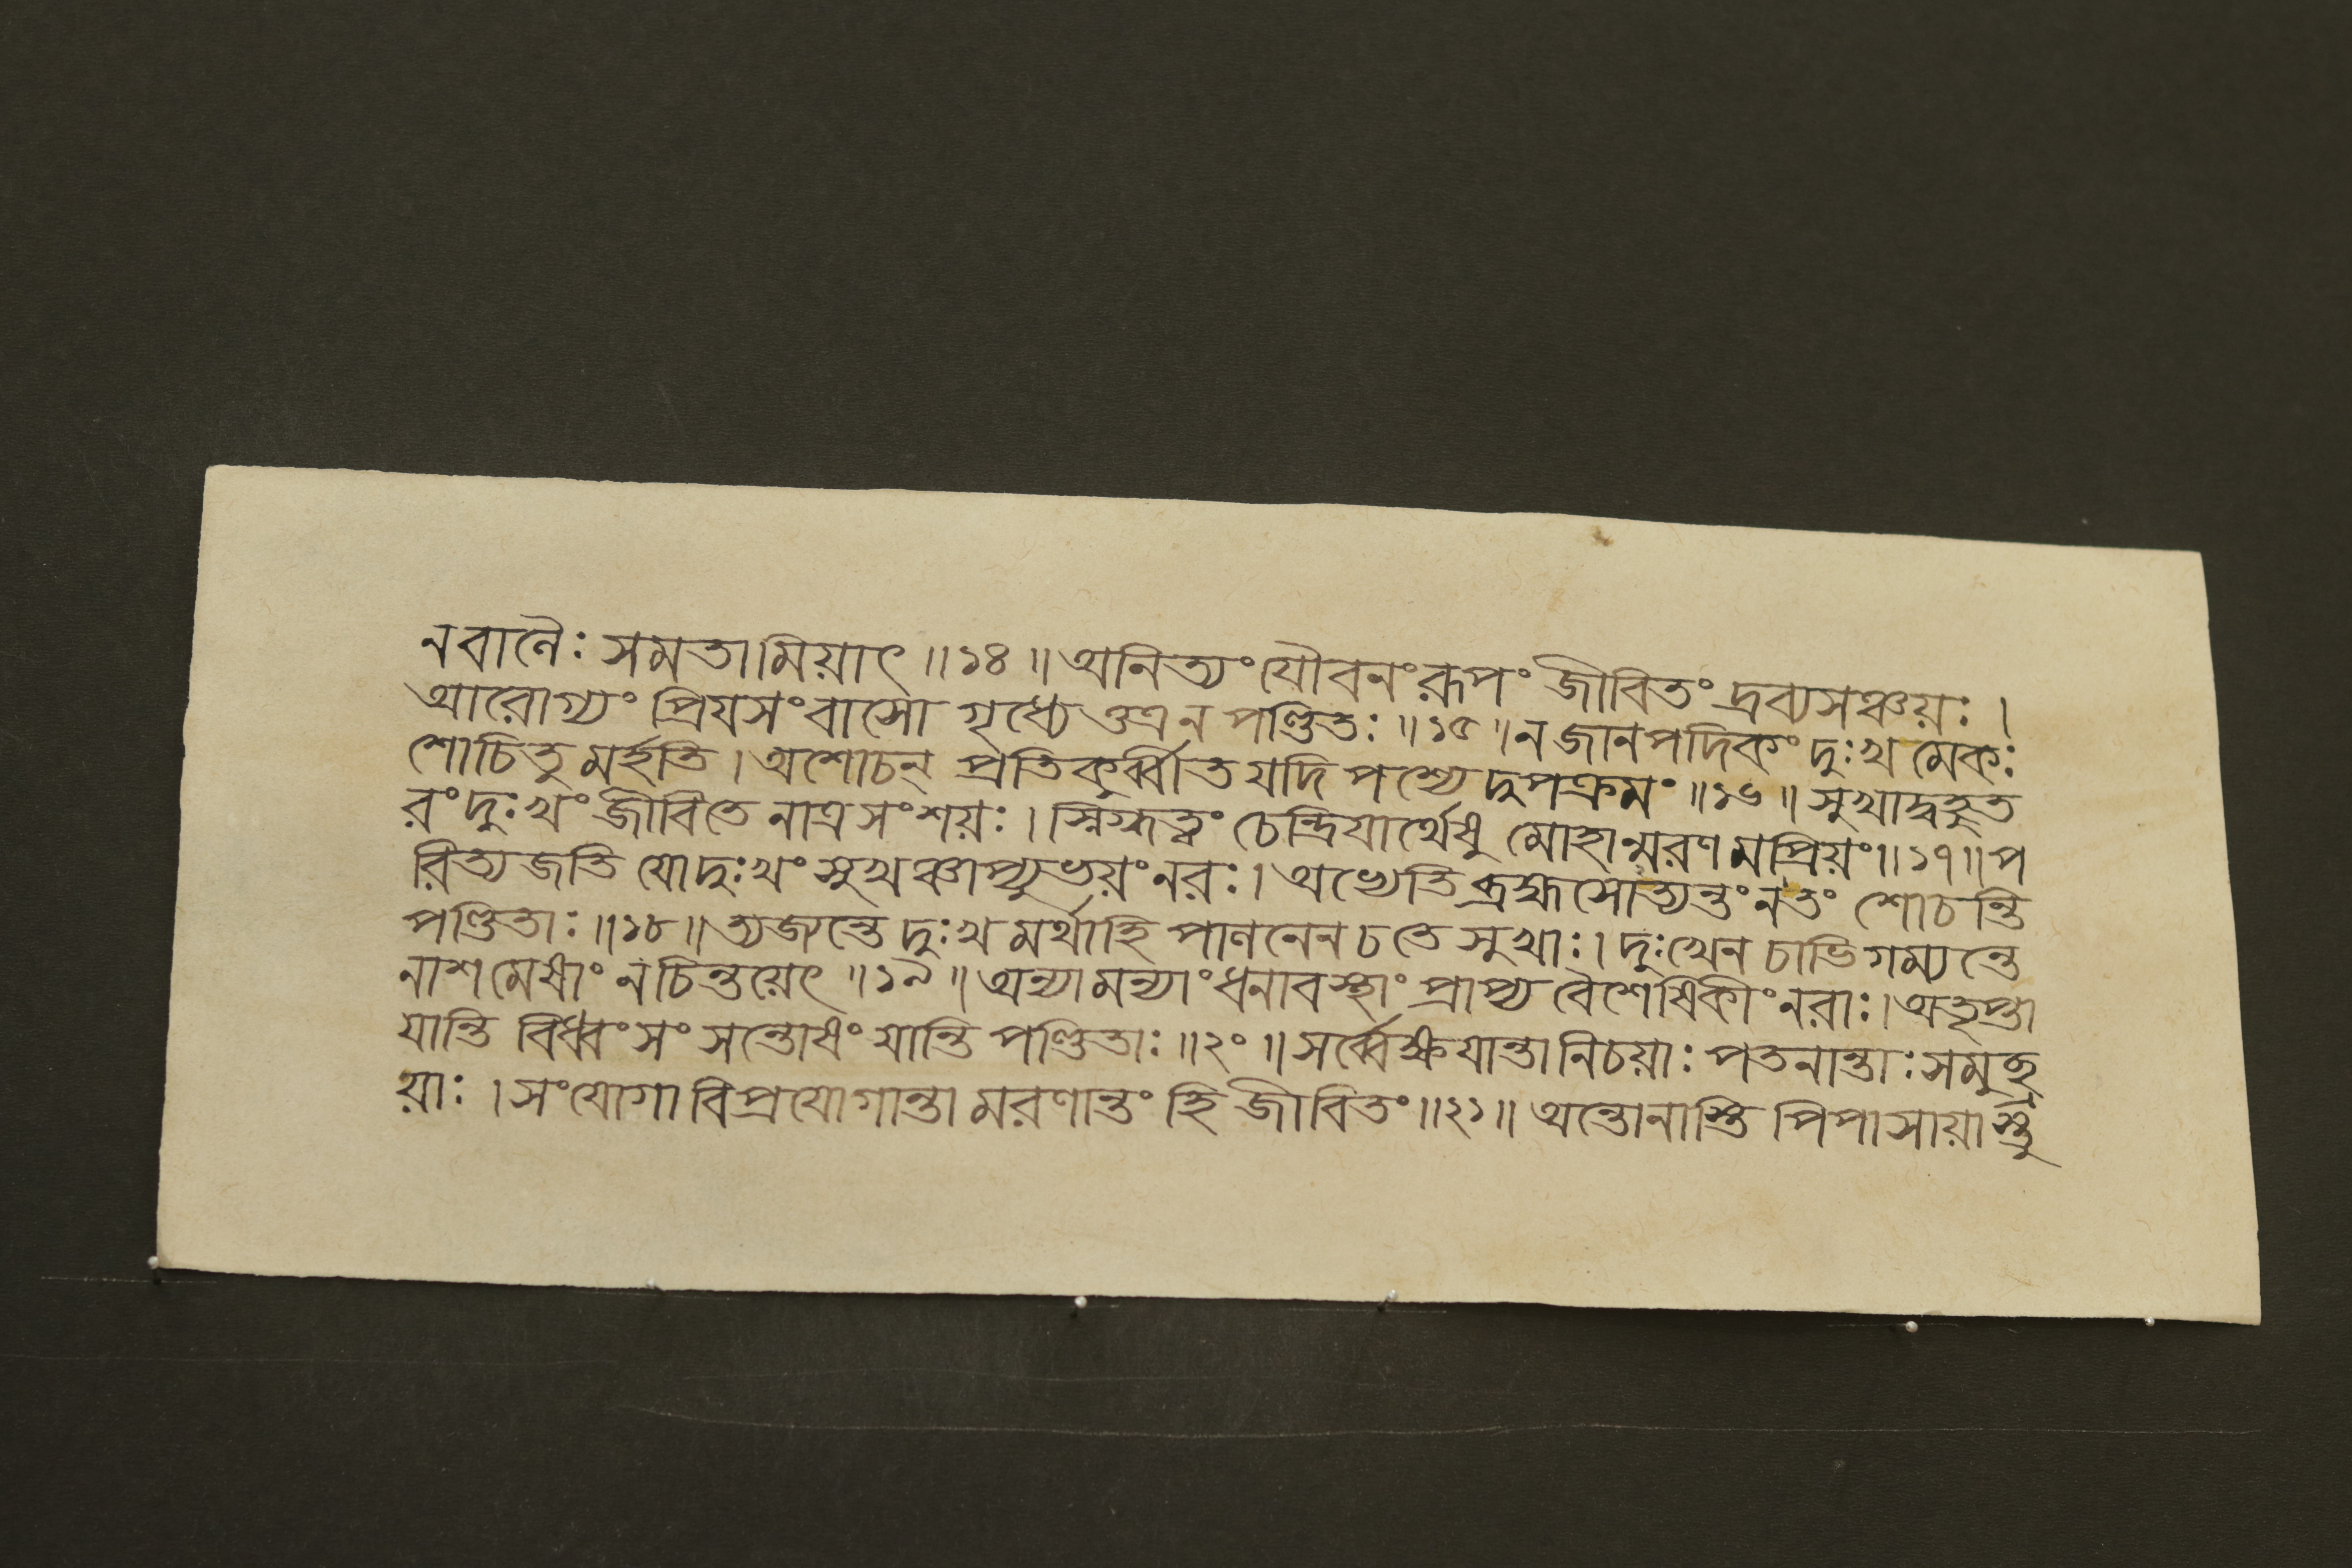 নবানৈঃ সমতামিয়াৎ ॥১৪॥ অনিত্যং যৌবনং রূপং জীবিতং দ্রব্যসঞ্চয়ঃ ।
আরোগ্যং প্রিযসংবাসো গৃধ্যেত্তএন পণ্ডিতঃ ॥১৫॥ ন জানপদিকং দুঃখ মেকঃ
শোচিতু মর্হতি । অশোচন্ প্রতিকুর্ব্বীত যদি পশ্যেদুপক্রমং ॥১৬॥ সুখাদ্বহুত
রং দুঃখং জীবিতে নাত্রসংশয়ঃ । স্নিগ্ধত্বং চেন্দ্রিযার্থেষু মোহান্মরণমপ্রিয়ং ॥১৭॥ প
রিত্যজতি যোদুঃখং সুখঞ্চাপ্যুভয়ং নরঃ । অভ্যেতি ব্রহ্মসোত্যন্তং নতং শোচন্তি
পণ্ডিতাঃ ॥১৮॥ ত্যজ্যন্তে দুঃখ মর্থাহি পাণনেন চতে সুখাঃ । দুঃখেন চাভিগম্যন্তে
নাশমেষাং ন চিন্তয়েৎ ॥১৯॥ অন্যামন্যাং ধনাবস্থাং প্রাপ্য বৈশেষিকীং নরাঃ । অতৃপ্তা
যান্তি বিধ্বংসং সন্তোষং যান্তি পণ্ডিতাঃ ॥২০॥ সর্ব্বেক্ষযান্তানিচয়াঃ পতনান্তাঃ সমুচ্ছ্র
য়াঃ । সংযোগা বিপ্রযোগান্তা মরণান্তং হি জীবিতং ॥২১॥ অন্তোনাস্তি পিপাসায়াস্তু